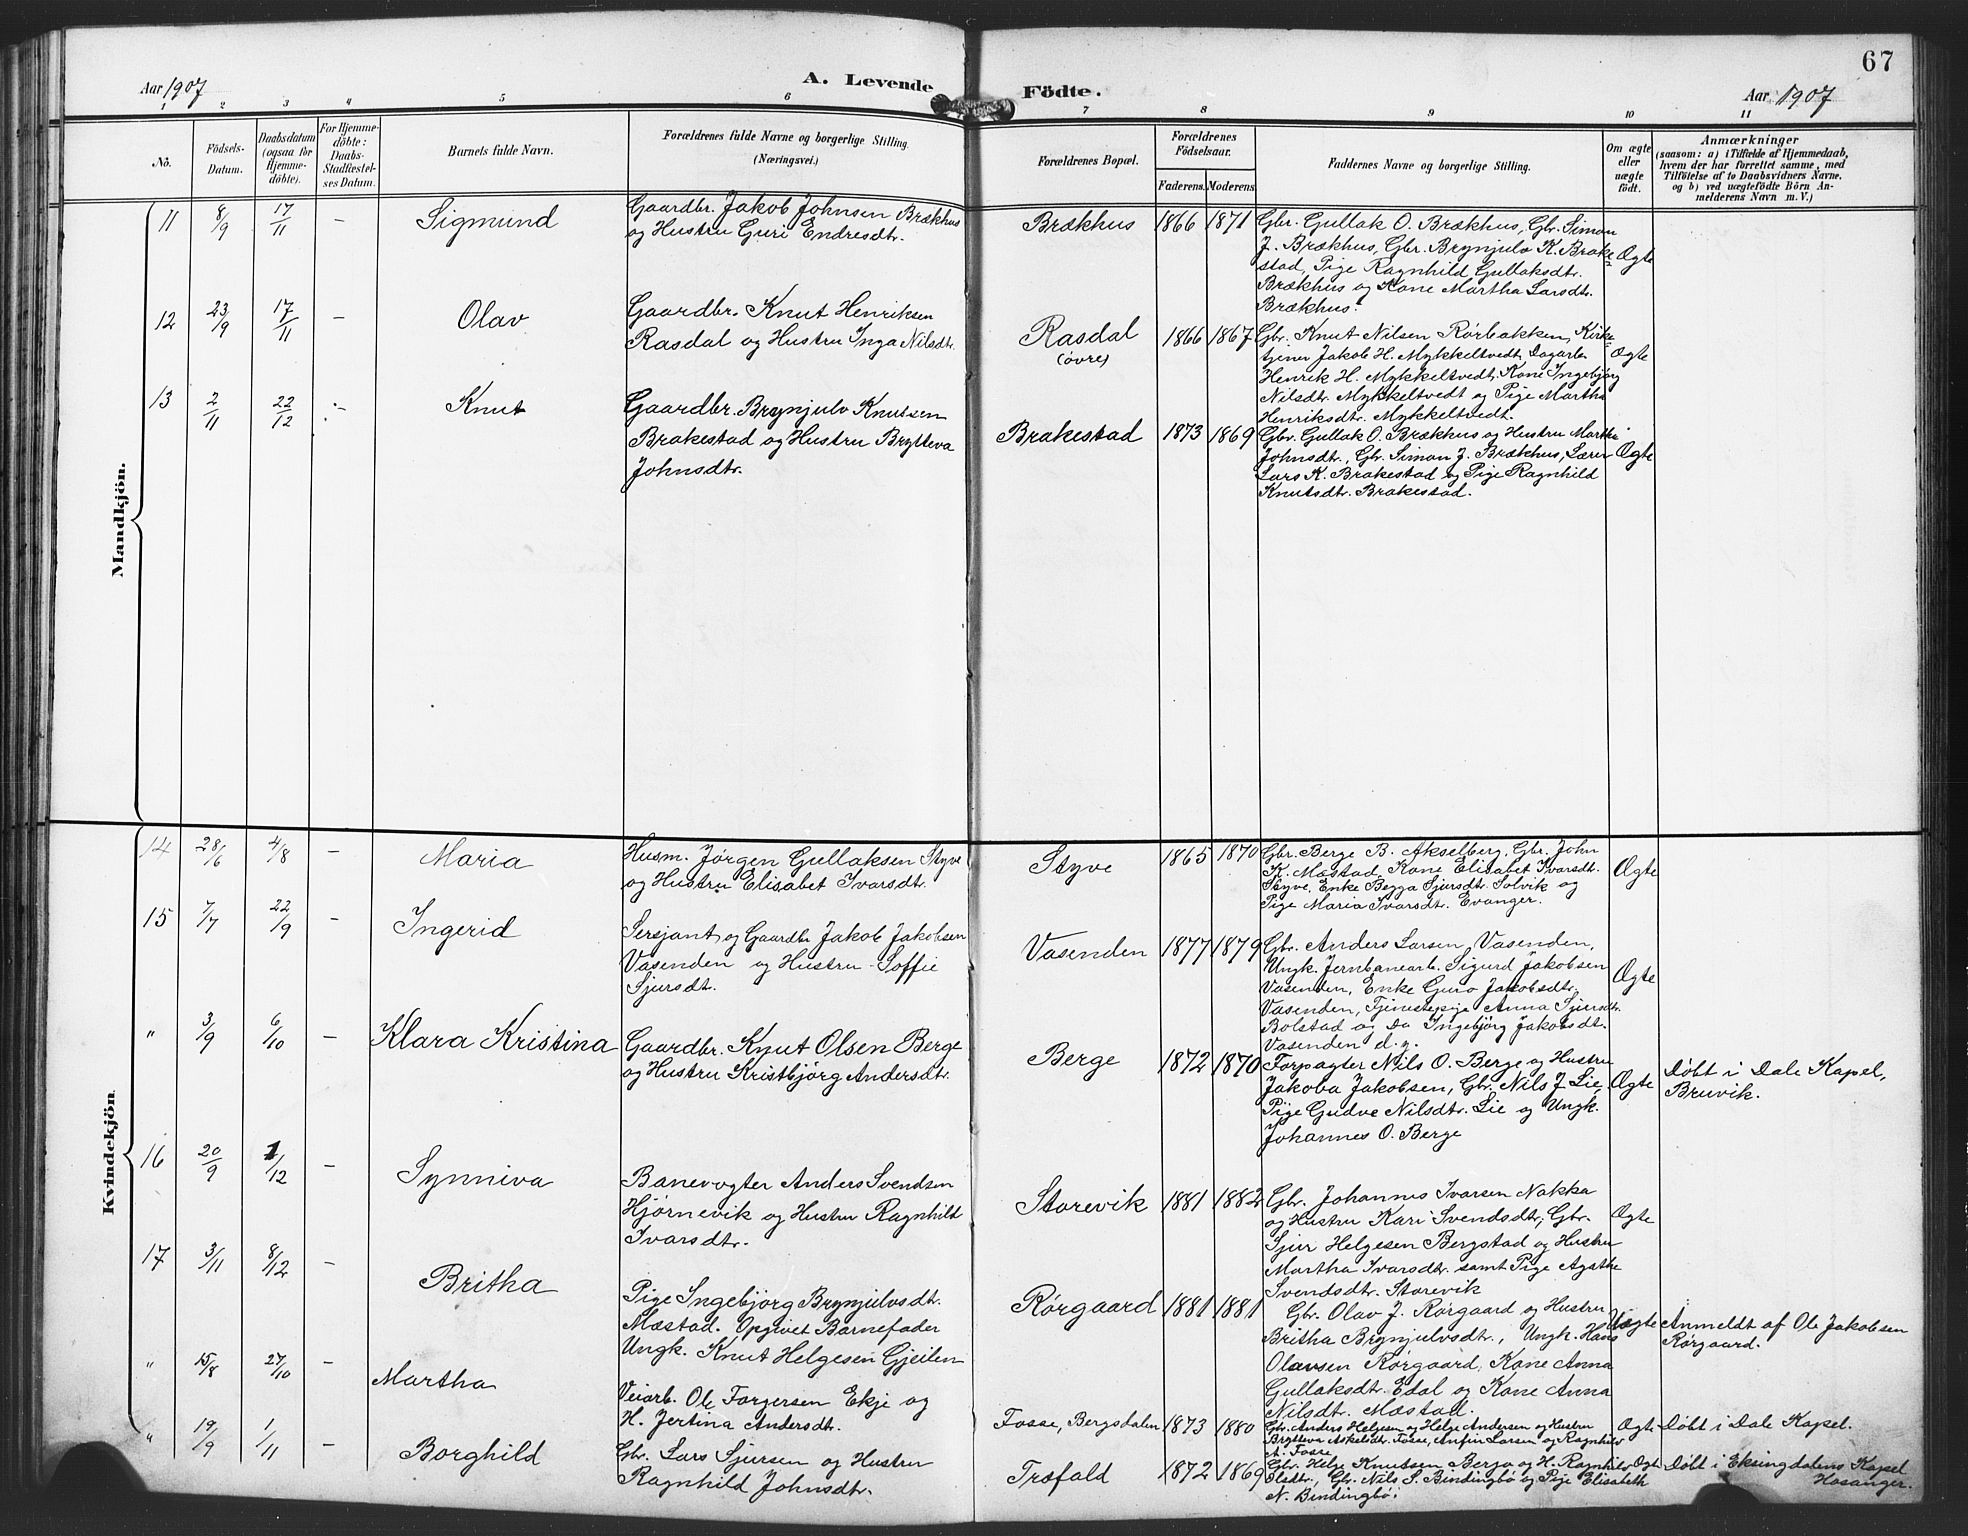 67
Aar 1907
A. Levende
Födte.
Aar 1907
1 2 3 4 5 6 7 8 9 10 11
Nö.
Födsels-
Datum.
Daabsdatum
(ogsaa for
Hjemme-
döbte).
For Hjemme-
döbte:
Daabs-
Stadfæstel-
ses Datum.
Barnets fulde Navn.
Forældrenes fulde Navne og borgerlige Stilling
(Næringsvei.)
Forældrenes Bopæl.
Forældrenes
Födselsaar.
Faderens. Moderens
Faddernes Navne og borgerlige Stilling.
Om ægte
eller
uægte
födt.
Anmærkninger
(saasom: a) i Tilfælde af Hjemmedaab,
hvem der har forrettet samme, med
Tilföielse af to Daabsvidners Navne,
og b) ved uægtefödte Börn An-
melderens Navn m. V.)
Mandkjön.
11 8/9 17/11 – Sigmund
Gaardbr. Jakob Johnsen Brækhus
og Hustru Guri Endresdtr.
Brækhus 1866 1871
Gbr. Gullak O. Brækhus, Gbr. Simon
J. Brækhus, Gbr. Brynjulv K. Brake-
stad, Pige Ragnhild Gullaksdtr.
Brækhus og Kone Martha Larsdtr.
Brækhus.
Ægte
12 23/9 17/11 – Olav
Gaardbr. Knut Henriksen
Rasdal og Hustru Inga Nilsdtr.
Rasdal
(övre)
1866 1867
Gbr. Knut Nilsen Rørbakken, Kirke-
tjener Jakob H. Mykkeltvedt, Dagarb.
Henrik H. Mykkeltvedt, Kone Ingebjørg
Nilsdtr. Mykkeltvedt og Pige Martha
Henriksdtr. Mykkeltvedt.
Ægte
13 2/11 22/12 – Knut
Gaardbr. Brynjulv Knutsen
Brakestad og Hustru Brytteva
Johnsdtr.
Brakestad 1873 1869
Gbr. Gullak O. Brækhus og Hustru Martha
Johnsdtr., Gbr. Simon J. Brækhus, Lærer
Lars K. Brakestad og Pige Ragnhild
Knutsdtr. Brakestad.
Ægte
Kvindekjön
14 28/6 4/8 – Maria
Husm. Jørgen Gullaksen Styve
og Hustru Elisabet Ivarsdtr.
Styve 1865 1870
Gbr. Berge B. Akselberg, Gbr. John
K. Mæstad, Kone Elisabet Ivarsdtr.
Styve, Enke Begga Sjursdtr. Solvik og
Pige Maria Ivarsdtr. Evanger.
Ægte
15 7/7 22/9 – Ingerid
Sersjant og Gaardbr Jakob Jakobsen
Vasenden og Hustru Soffie
Sjursdt.
Vasenden 1877 1879
Gbr. Anders Larsen Vasenden,
Ungk. Jernbanearb. Sigurd Jakobsen
Vasenden, Enke Guro Jakobsdtr.
Vasenden, Tjenestepige Anna Sjursdtr.
Bolstad og Do Ingebjörg Jakobsdt.
Vasenden d. y.
Ægte
" 3/9 6/10 – Klara Kristina
Gaardbr. Knut Olsen Berge
og Hustru Kristbjörg Andersdtr.
Berge 1872 1870
Forpagter Nils O. Berge og Hustru
Jakoba Jakobsen, Gbr. Nils J. Lie,
Pige Gudve Nilsdtr. Lie og Ungk.
Johannes O. Berge
Ægte
Döbt i Dale Kapel,
Bruvik.
16 20/9 1/12 – Synniva
Banevogter Anders Svendsen
Hjørnevik og Hustru Ragnhild
Ivarsdtr.
Storevik 1881 1882
Gbr. Johannes Ivarsen Nakka
og Hustru Kari Svendsdtr, Gbr.
Sjur Helgesen Bergstad og Hustru
Martha Ivarsdtr. samt Pige Agathe
Svendsdtr. Storevik
Ægte
17 3/11 8/12 – Britha
Pige Ingebjörg Brynjulvsdtr.
Mæstad. Opgivet Barnefader
Ungk. Knut Helgesen Gjeilen
Rørgaard 1881 1881
Gbr. Olav J. Rørgaard og Hustru
Britha Brynjulvsdtr., Ungk. Hans
Olavsen Rørgaard, Kone Anna
Gullaksdtr. Edal og Kone Anna
Nilsdtr. Mæstad.
Uægte
Anmeldt af Ole Jakobsen
Rörgaard.
" 15/8 27/10 – Martha
Veiarb. Ole Torgersen Ekje og
H. Jertina Andersdt.
Fosse, Bergsdalen 1873 1880
Gbr. Anders Helgesen og Helge Andersen og Hustru
Brytteva Askelsdtr. Fosse, Anfin Larsen og Ragnhild
A. Fosse
Ægte
Döbt i Dale Kapel.
" 19/9 1/11 – Borghild
Gbr. Lars Sjursen og Hustru
Ragnhild Johnsdtr.
Træfald 1872 1869
Gbr. Helge Knutsen Bergo og H. Ragnhild
Olsdtr., Gbr. Nils S. Bindingbø og Pige Elisabeth
N. Bindingbø.
Ægt
Döbt i Eksingdalens Kapel
Hosanger.